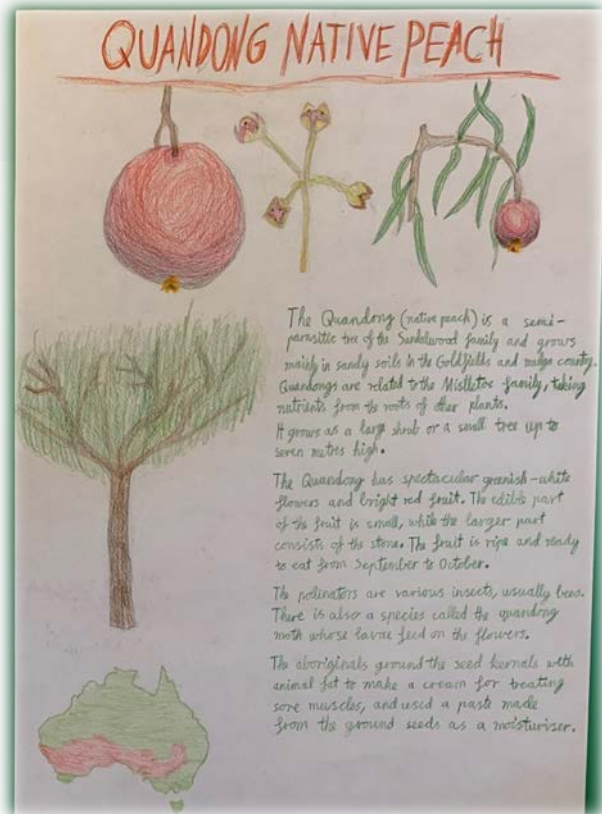 QUANDONG NATIVE PEACH
The Quandong (native peach) is a semi-
parasitic tree of the Sandalwood family and grows
mainly in sandy soils in the Goldfields and mulga country.
Quandongs are related to the Mistletoe family, taking
nutrients from the roots of other plants.
It grows as a large shrub or a small tree up to
seven metres high.
The Quandong has spectacular greenish-white
flowers and bright red fruit. The edible part
of the fruit is small, while the larger part
consists of the stone. The fruit is ripe and ready
to eat from September to October.
The pollinators are various insects, usually bees.
There is also a species called the quandong
moth whose larvae feed on the flowers.
The aboriginals ground the seed kernals with
animal fat to make a cream for treating
sore muscles, and used a paste made
from the ground seeds as a moisturiser.